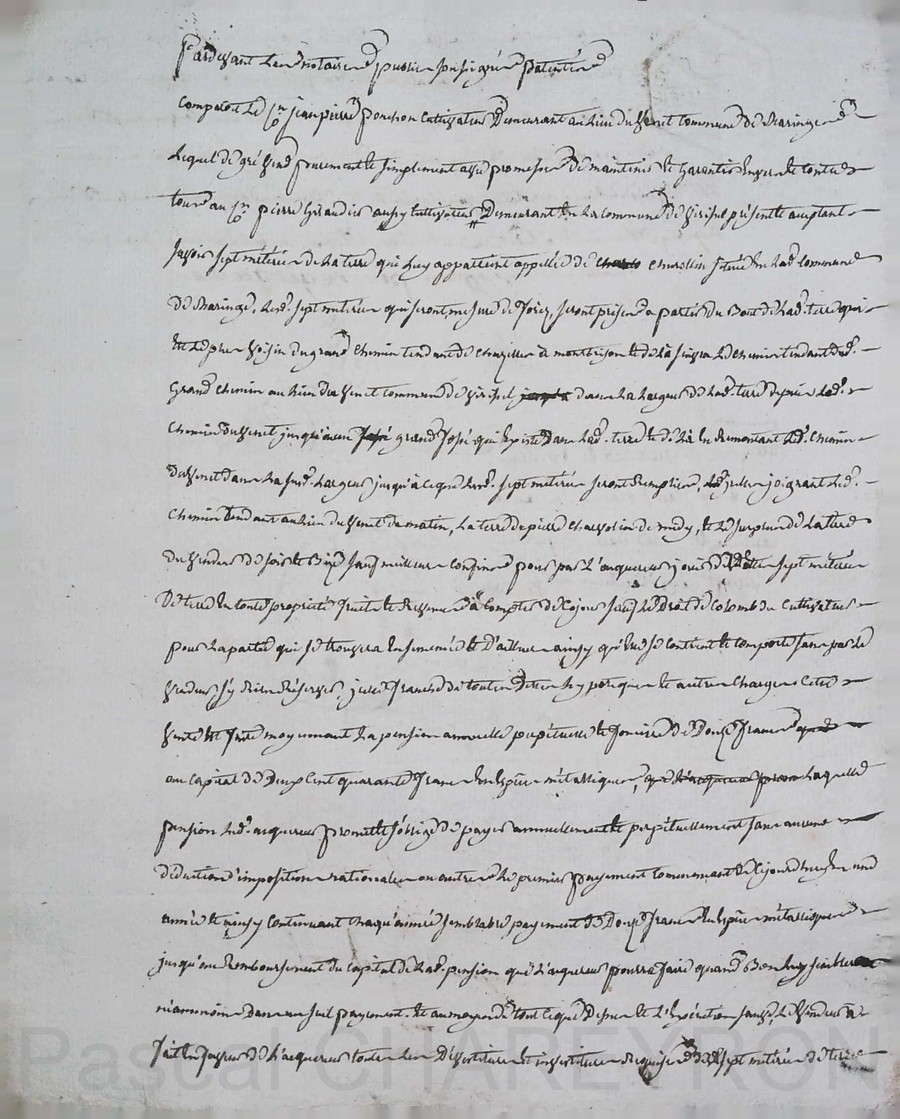 Pardevant Le notaire public soussigné patenté
Comparut Le Cn jean pierre poncson Cultivateur Demeurant au lieu du Vernet Commune de Maringe
Lequel de gré vend purement et simplement avec promesse de maintenir et garentir Envers et contre
tous au Cn pierre Giraudier aussy Cultivateur Demeurant En La commune de Virisel présent et acceptant
Savoir Sept métérée de La terre qui Luy appartient appellée de Situé En Lad. Commune
de Maringe, Lesd. sept métérée qui seront mesure de forez, seront prise a partir du Bout de Lad. terre qui
Est Le plus voisin du grand Chemin tendant de Chazelles à montbrison et de là suivra Le chemin tendant dud.
Grand Chemin au lieu du Vernet commune de Virisel dans La Largeur de Lad. terre depuis Led.
Chemin du Vernet jusqu'à un grand fossé qui Existe Dans Lad. terre et de là En remontant Led. Chemin
du Vernet dans La susd. Largeur jusqu'à ce que Lesd. sept métérée seront remplies, joignant Led.
Chemin tendant au lieu du Vernet de matin, La terre de pierre de midy, et Le surplus de La terre
du vendeur de soir et Bize sauf meilleurs confins pour par L'acquereur jouir desd. sept métérée
De terre En toute propriété fruits et revenus à Compter de Ce jour sauf Le Droit de colons du Cultivateur
pour La partie qui se trouvera Ensemencée Et D'ailleurs ainsy qu'elle se contient et comporte sans par Le
vendeur s'y Rien Réserver, franche de toutes Dettes hypoteques et autres Charges Cette
vente Est faite moyennant La pension annuelle perpétuelle et fonciere de Douze francs
au Capital de Deux Cent quarante francs En Espèce métallique, Laquelle
pension Led. acquereur promet et s'oblige de payer annuellement et perpétuellement sans aucune
déduction d'imposition nationale ou autres Le premier payement Commencant de Ce jourd'huy En une
année et ainsy Continuant Chaqu'année semblable payement de Douze francs En Espèce métallique
jusqu'au Remboursement du Capital de Lad. pension que L'acquereur pourra faire quand Bon Luy semblera
néanmoins Dans un seul payement et au moyen de tout Ce que Dessus et L'Exécution sauve, Le vendeur a
fait En faveur de L'acquereur toutes Les Dévestitures et investitures Requises Desd. sept métérée de terre
Pascal CHAREYRON